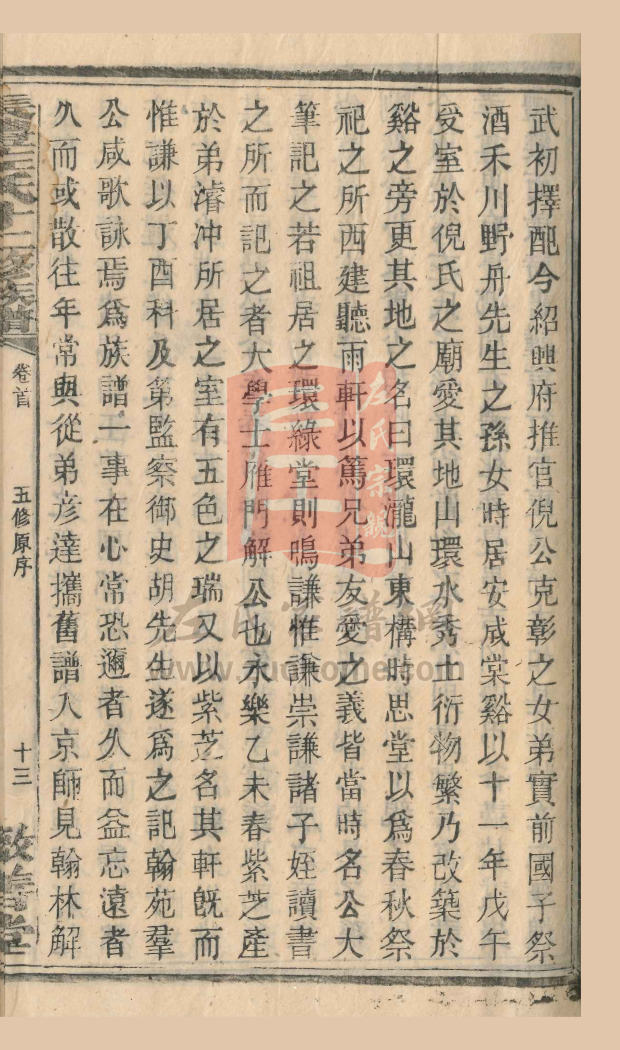 武初擇配今紹興府推官倪公克彰之女弟實前國子祭
酒禾川野舟先生之孫女時居安成棠谿以十一年戊午
受室於倪氏之廟愛其地山環水秀土衍物繁乃改築於
谿之旁更其地之名曰環瀧山東構時思堂以爲春秋祭
祀之所西建聽雨軒以篤兄弟友愛之義皆當時名公大
筆記之若祖居之環綠堂則鳴謙惟謙崇謙諸子姪讀書
之所而記之者大學士雁門解公也永樂乙未春紫芝產
於弟濬冲所居之室有五色之瑞又以紫芝名其軒旣而
惟謙以丁酉科及第監察御史胡先生遂爲之記翰苑羣
公咸歌詠焉爲族譜一事在心常恐邇者久而益忘遠者
久而或散往年常與從弟彦達攜舊譜入京師見翰林解
氏十二修族譜
卷首
五修原序
十三
敦睦堂
左氏宗親
左氏家譜網
www.zuohome.com